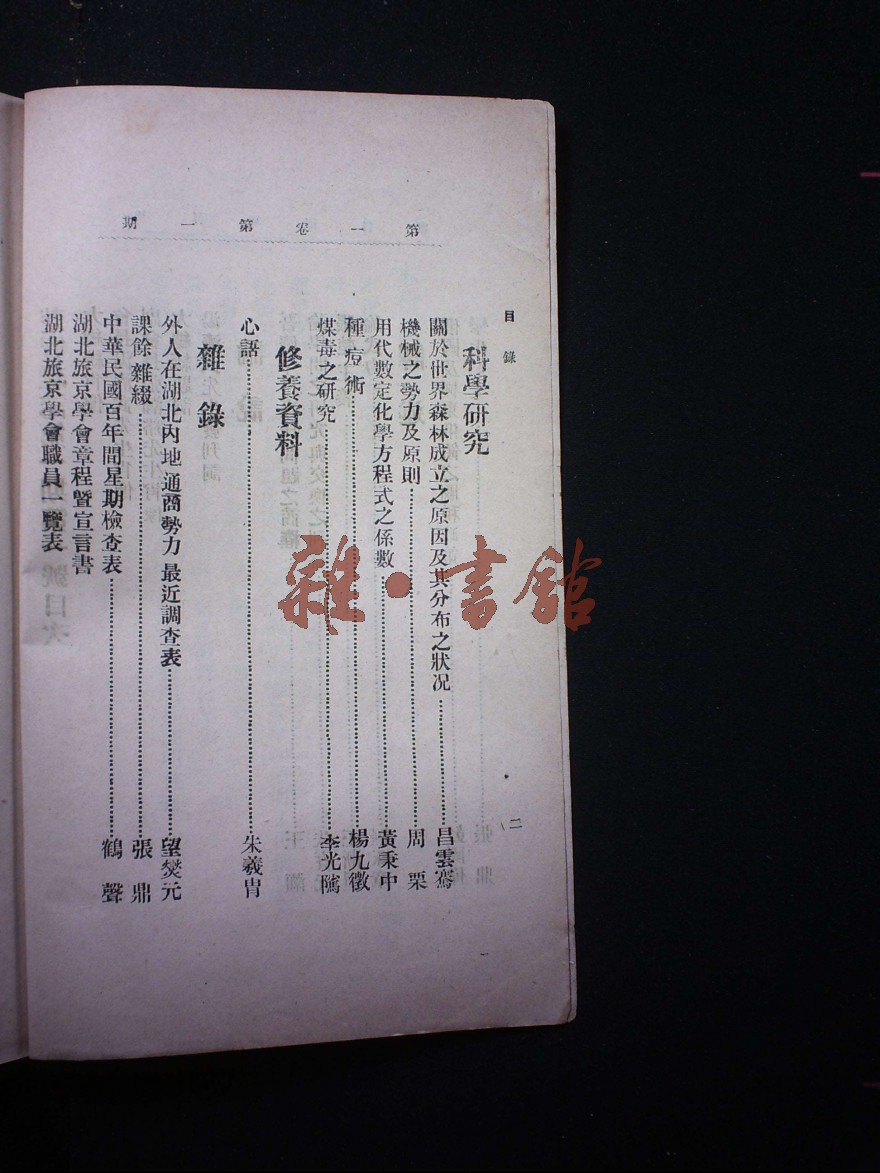 第一卷第一期
目錄
二
科學研究
關於世界森林成立之原因及其分布之狀況……昌雲騫
機械之勢力及原則……周栗
用代數定化學方程式之係數……黃秉中
種痘術……楊九徵
煤毒之研究……李光
修養資料
心話……朱羲冑
雜錄
外人在湖北內地通商勢力最近調查表……望燓元
課餘雜綴……張鼎
中華民國百年間星期檢查表……鶴聲
湖北旅京學會章程暨宣言書
湖北旅京學會職員一覽表
雜·書館